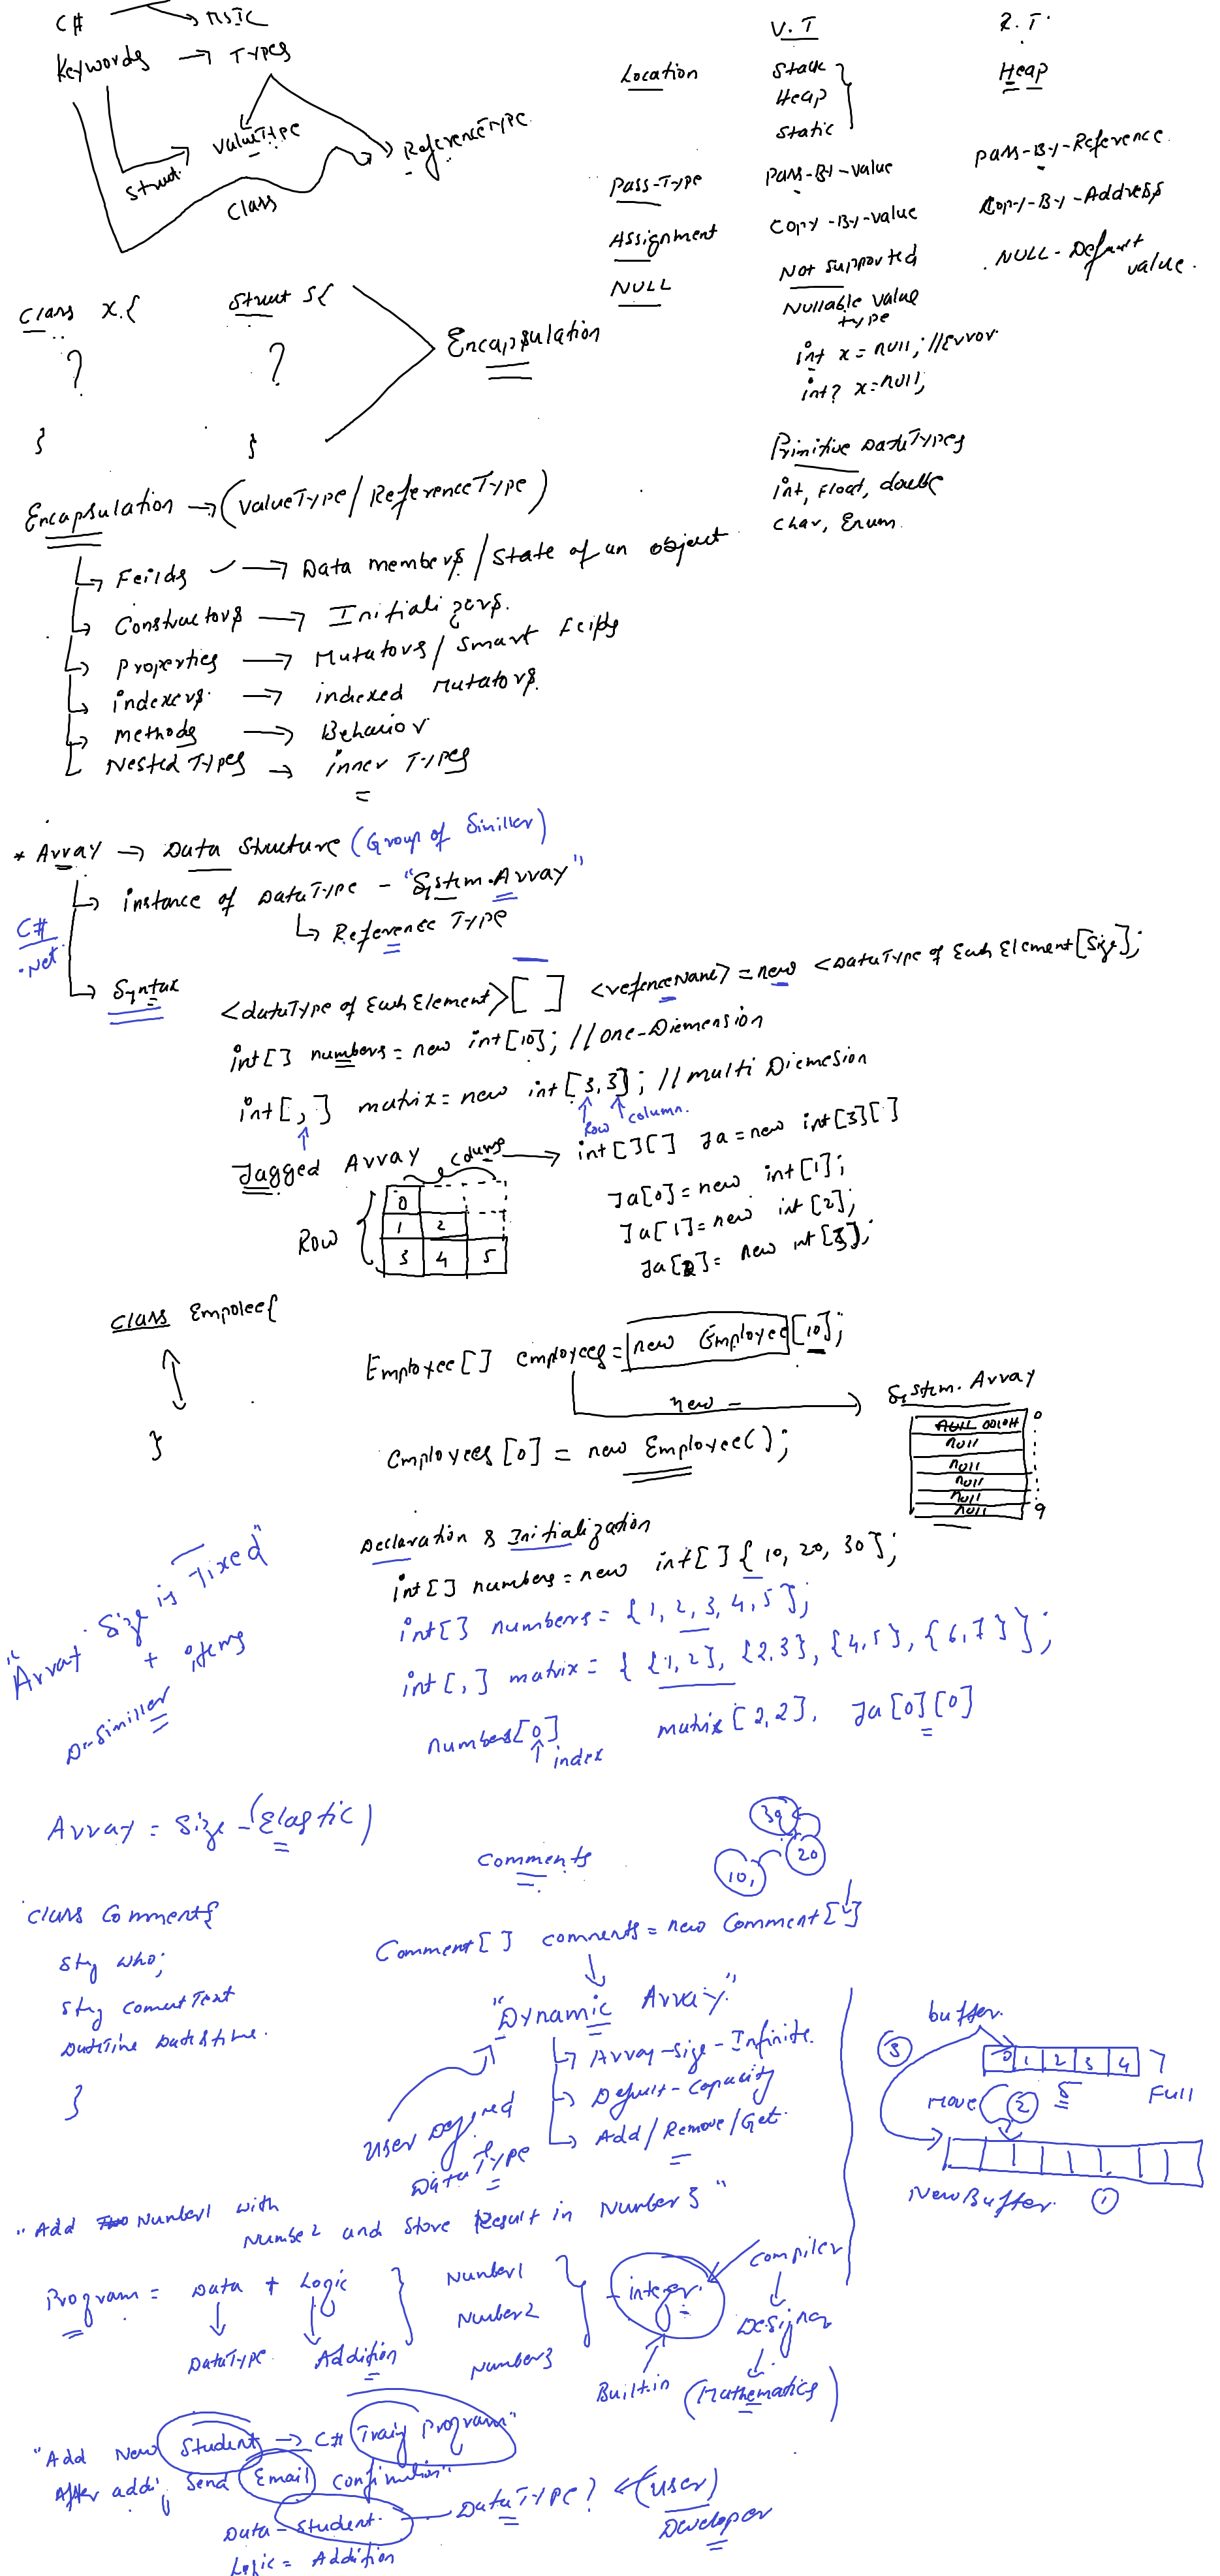 C# → MSIL
Keywords → Types
ValueType
ReferenceType
Struct
Class
V.T
R.T.
Location
Stack
Heap
Static
Heap
Pass-Type
Pass-By-value
Pass-By-Reference
Assignment
Copy-By-value
Copy-By-Address
NULL
Not supported
NULL-Default value.
Nullable value type
int x = null; //Error
int? x = null;
Class X {
?
}
Struct S{
?
}
Encapsulation
Primitive DataTypes
int, float, double
char, Enum.
Encapsulation → (ValueType/ReferenceType)
Feilds → Data members/State of an object
Constructors → Initializers.
Properties → Mutators/Smart Feilds
indexers. → indexed Mutators.
Methods → Behavior
Nested Types → inner Types
* Array → Data Structure (Group of Similler)
instance of DataType - "System.Array"
Reference Type
C#
.Net
Syntax
<dataType of Each Element>[ ] <refenceName> = new <DataType of Each Element[Size];
int[] numbers = new int[10]; //one-Diemension
int[,] matrix = new int[3,3]; //multi Diemesion
Row
column.
Jagged Array
int[][] Ja = new int[3][]
Ja[0] = new int[1];
Ja[1] = new int[2];
Ja[2] = new int[3];
column
Row
0
1 2
3 4 5
class Empolee{
}
Employee[] employees = new Employee[10];
new
System.Array
NULL 001OH 0
null
null
null
null
null 9
Employees[0] = new Employee();
Declaration & Initialization
int[] numbers = new int[] { 10, 20, 30 };
int[] numbers = {1, 2, 3, 4, 5};
int[,] matrix = { {1,2}, {2,3}, {4,5}, {6,7} };
numbers[0] matrix[2,2]. Ja[0][0]
index
"Array Size is Fixed"
+
D-Similler items
Array = Size - (Elastic)
comments
39
10,
20
class Comment{
who;
DateTime
}
Comment[] comments = new Comment[ ]
"Dynamic Array"
Array-Size-Infinite.
Default-Capacity
Add/Remove/Get.
User Defined
DataType
buffer.
3
0 1 2 3 4
Full
Move 2
5
NewBuffer. 1
"Add Number1 with
Number2 and Store Result in Number3"
Program = Data + Logic
DataType. Addition
Number1
Number2
Number3
integer.
Built-in
Compiler
Designer
(Mathematics)
"Add New Student → C# Program"
After Send Email
Data - Student. DataType? ← (User)
Developer
Logic = Addition